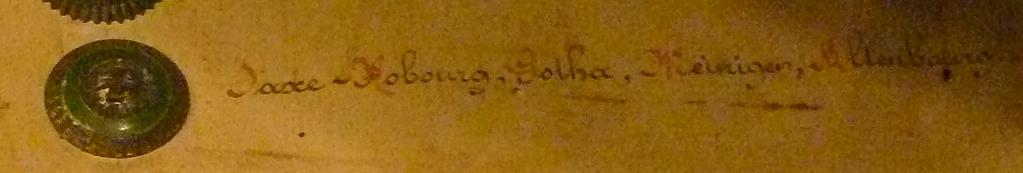 Saxe-Kobourg, Gotha, Meinigen, Altenbourg